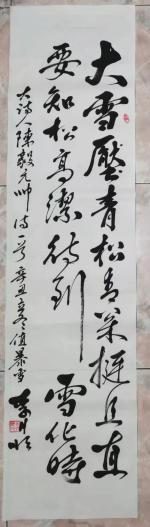 大雪壓青松青松挺且直
要知松高潔待到雪化時
大詩人陳毅元帥詩一首辛丑冬值暴雪